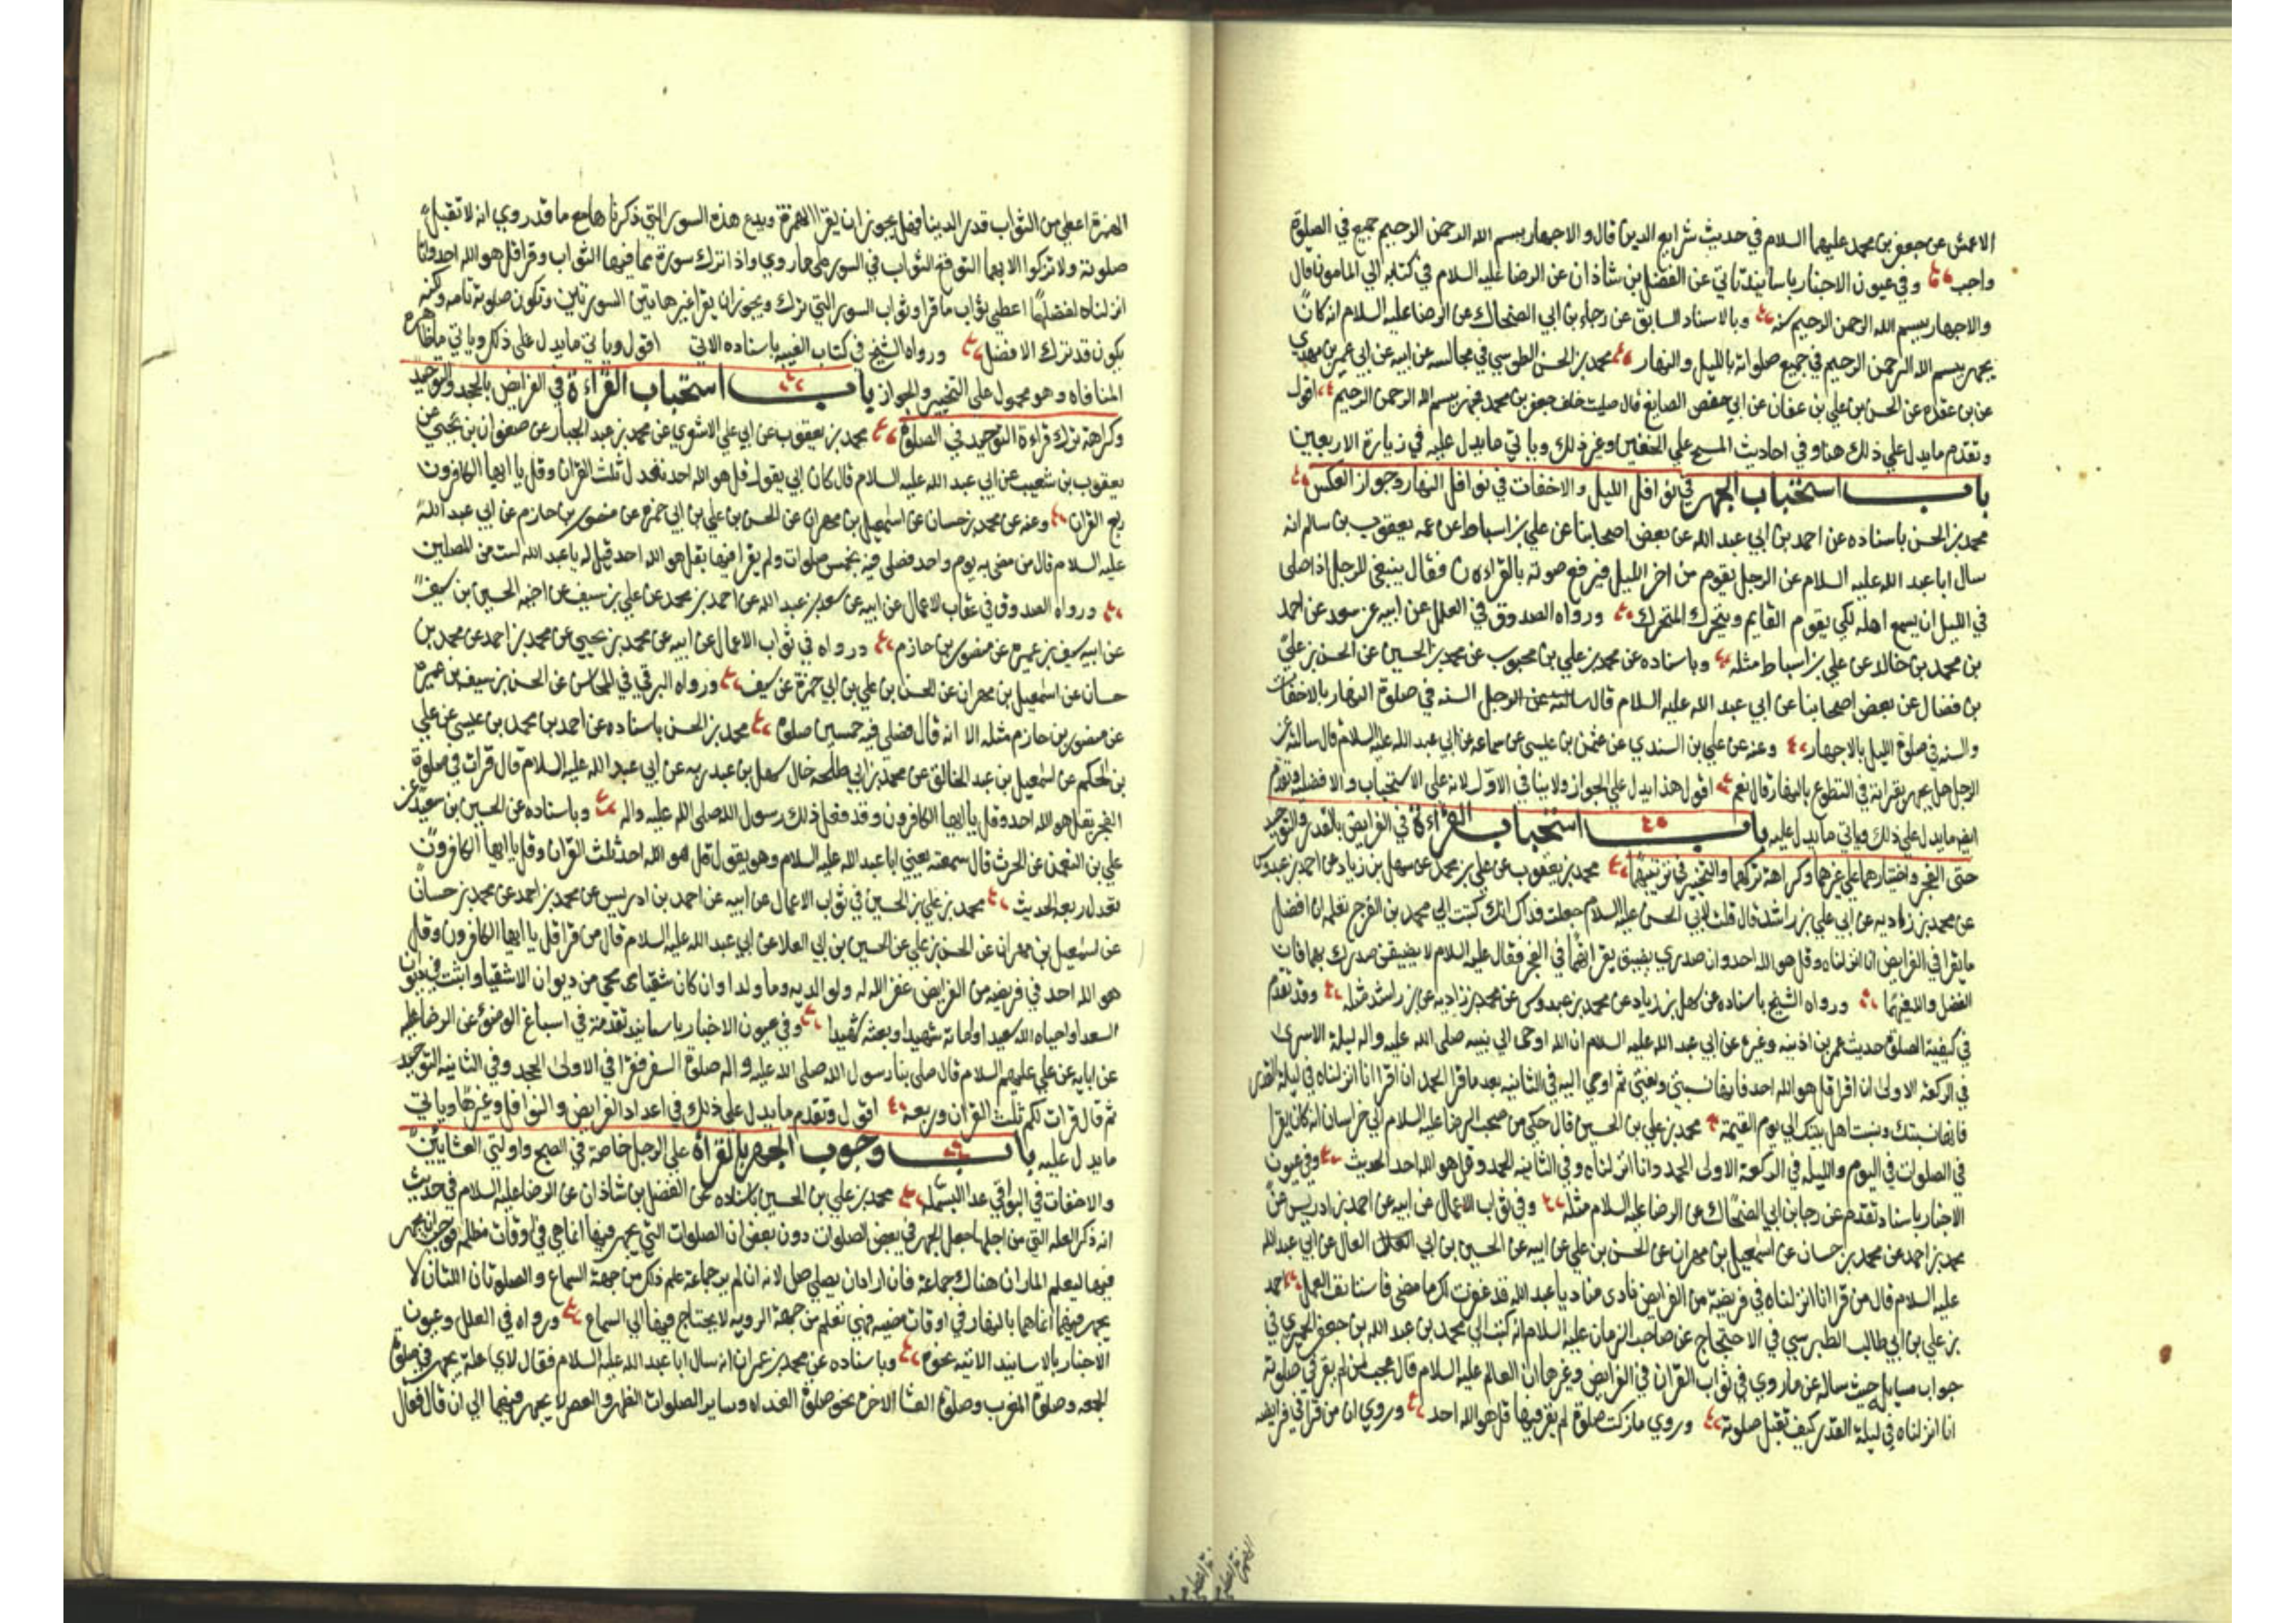 الاعمش عن جعفر بن محمد عليهما السلام في حديث شرايع الدين قال والاجهار ببسم الله الرحمن الرحيم جميع في الصلوة
واجب وفي عيون الاخبار باسانيد تاتي عن الفضل بن شاذان عن الرضا عليه السلام في كتابه الي المامون قال
والاجهار ببسم الله الرحمن الرحيم سنه وبالاسناد السابق عن رجاء بن ابي الضحاك عن الرضا عليه السلام انه كان
يجهر ببسم الله الرحمن الرحيم في جميع صلواته بالليل والنهار محمد بن الحسن الطوسي في مجالسه عن ابيه عن ابي عمر بن مهدي
عن بن عقده عن الحسن بن علي بن عفان عن ابي حفص الصايغ قال صليت خلف جعفر بن محمد فجهر ببسم الله الرحمن الرحيم اقول
وتقدم مايدل علي ذلك هنا وفي احاديث المسح علي الخفين وغير ذلك وياتي مايدل عليه في زيارة الاربعين
باب استحباب الجهر في نوافل الليل والاخفات في نوافل النهار وجواز العكس
محمد بن الحسن باسناده عن احمد بن ابي عبد الله عن بعض اصحابنا عن علي بن اسباط عن عمه يعقوب بن سالم انه
سال ابا عبد الله عليه السلام عن الرجل يقوم من اخر الليل فيرفع صوته بالقران فقال ينبغي للرجل اذا صلى
في الليل ان يسمع اهله لكي يقوم القايم ويتحرك المتحرك ورواه الصدوق في العلل عن ابيه عن سعد عن احمد
بن محمد بن خالد عن علي بن اسباط مثله وباسناده عن محمد بن علي بن محبوب عن محمد بن الحسين عن الحسن بن علي
بن فضال عن بعض اصحابنا عن ابي عبد الله عليه السلام قال السنه في صلوة النهار بالاخفات
والسنه في صلوة الليل بالاجهار وعنه عن علي بن السندي عن عثمن بن عيسى عن سماعه عن ابي عبد الله عليه السلام قال سالته عن
الرجل هل يجهر بقراءته في التطوع بالنهار قال نعم اقول هذا يدل علي الجواز ولا ينافي الاول لانه علي الاستحباب والافضليه وتقدم
مايدل علي ذلك وياتي مايدل عليه باب استحباب القراءة في الفرايض بالقدر والتوحيد
حتى الفجر واختيارهما علي غيرهما وكراهة تركهما والتخيير في ترتيبهما محمد بن يعقوب عن علي بن محمد عن سهل بن زياد عن احمد بن عبدوس
عن محمد بن زاديه عن ابي علي بن راشد قال قلت لابي الحسن عليه السلام جعلت فداك انك كتبت الي محمد بن الفرج تعلمه ان افضل
مايقرا في الفرايض انا انزلناه وقل هو الله احد وان صدري يضيق بقراءتهما في الفجر فقال عليه السلام لا يضيقن صدرك بهما فان
الفضل والله فيهما ورواه الشيخ باسناده عن سهل بن زياد عن محمد بن عبدوس عن محمد بن زاديه عن بن راشد مثله وقد تقدم
في كيفية الصلوة حديث عمر بن اذينه وغيره عن ابي عبد الله عليه السلام ان الله اوحى الي نبيه صلى الله عليه واله ليلة الاسرى
في الركعة الاولى ان اقرا قل هو الله احد فانها نسبتي ونعتي ثم اوحى اليه في الثانيه بعد ماقرا الحمد ان اقرا انا انزلناه في ليلة القدر
فانها نسبتك ونسبت اهل بيتك الي يوم القيمة محمد بن علي بن الحسين قال حكى من صحب الرضا عليه السلام الي خراسان انه كان يقرا
في الصلوات في اليوم والليله في الركعة الاولى الحمد وانا انزلناه وفي الثانيه الحمد وقل هو الله احد الحديث وفي عيون
الاخبار باسناد تقدم عن رجا بن ابي الضحاك عن الرضا عليه السلام مثله وفي ثواب الاعمال عن ابيه عن احمد بن ادريس عن
محمد بن احمد عن محمد بن حسان عن اسمعيل بن مهران عن الحسن بن علي عن ابيه عن الحسين بن ابي العلا عن ابي عبد الله
عليه السلام قال من قرا انا انزلناه في فريضة من الفرايض نادى مناد يا عبد الله قد غفرت لك ما مضى فاستانف العمل احمد
بن علي بن ابي طالب الطبرسي في الاحتجاج عن صاحب الزمان عليه السلام انه كتب الي محمد بن عبد الله بن جعفر الحميري في
جواب مسايله حيث ساله عن ماروي في ثواب القران في الفرايض وغيرها ان العالم عليه السلام قال عجبا لمن لم يقرا في صلوته
انا انزلناه في ليلة القدر كيف تقبل صلوته وروي مازكت صلوة لم يقرا فيها قل هو الله احد وروي ان من قرا في فرايضه
الهمزة اعطي من الثواب قدر الدنيا فهل يجوز ان يقرا الهمزة ويدع هذه السور التي ذكرناها مع ماقد روي انه لا تقبل
صلوته ولا تزكوا الا بهما التوقيع الثواب في السور علي ماروي واذا ترك سورة مما فيها الثواب وقرا قل هو الله احد وانا
انزلناه لفضلهما اعطي ثواب ماقرا وثواب السور التي ترك ويجوز ان يقرا غير هاتين السورتين وتكون صلوته تامه ولكنه
يكون قد ترك الافضل ورواه الشيخ في كتاب الغيبه باسناده الاتي اقول وياتي مايدل علي ذلك وياتي ماظاهره
المنافاه وهو محمول علي التخيير والجواز باب استحباب القراءة في الفرايض بالجحد والتوحيد
وكراهة ترك قراءة التوحيد في الصلوة محمد بن يعقوب عن ابي علي الاشعري عن محمد بن عبد الجبار عن صفوان بن يحيى عن
يعقوب بن شعيب عن ابي عبد الله عليه السلام قال كان ابي يقول قل هو الله احد تعدل ثلث القران وقل يا ايها الكافرون
ربع القران وعنه عن محمد بن حسان عن اسمعيل بن مهران عن الحسن بن علي بن ابي حمزه عن منصور بن حازم عن ابي عبد الله
عليه السلام قال من مضى به يوم واحد فصلى فيه بخمس صلوات ولم يقرا فيها بقل هو الله احد قيل له يا عبد الله لست من المصلين
ورواه الصدوق في عقاب الاعمال عن ابيه عن سعد بن عبد الله عن احمد بن محمد عن علي بن سيف عن اخيه الحسين بن سيف
عن ابيه سيف بن عميره عن منصور بن حازم ورواه في ثواب الاعمال عن ابيه عن محمد بن يحيى عن محمد بن احمد عن محمد بن
حسان عن اسمعيل بن مهران عن الحسن بن علي بن ابي حمزة عن سيف ورواه البرقي في المحاسن عن الحسن بن سيف بن عميره
عن منصور بن حازم مثله الا انه قال فصلى فيه خمسين صلوه محمد بن الحسن باسناده عن احمد بن محمد بن عيسى عن علي
بن الحكم عن اسمعيل بن عبد الخالق عن محمد بن ابي طلحه خال سهل بن عبد ربه عن ابي عبد الله عليه السلام قال قرات في صلوة
الفجر بقل هو الله احد وقل يا ايها الكافرون وقد فعل ذلك رسول الله صلى الله عليه واله وباسناده عن الحسين بن سعيد عن
علي بن النعمن عن الحرث قال سمعته يعني ابا عبد الله عليه السلام وهو يقول قل هو الله احد ثلث القران وقل يا ايها الكافرون
تعدل ربعه الحديث محمد بن علي بن الحسين في ثواب الاعمال عن ابيه عن احمد بن ادريس عن محمد بن احمد عن محمد بن حسان
عن اسمعيل بن مهران عن الحسن بن علي عن الحسين بن ابي العلا عن ابي عبد الله عليه السلام قال من قرا قل يا ايها الكافرون وقل
هو الله احد في فريضه من الفرايض غفر الله له ولوالديه وما ولدا وان كان شقيا محي من ديوان الاشقيا واثبت في ديوان
السعدا واحياه الله سعيدا واماته شهيدا وبعثه شهيدا وفي عيون الاخبار باسانيد تقدمت في اسباغ الوضوء عن الرضا عليه
عن ابايه عن علي عليهم السلام قال صلى بنا رسول الله صلى الله عليه واله صلوة السفر فقرا في الاولى الجحد وفي الثانيه التوحيد
ثم قال قرات لكم ثلث القران وربعه اقول وتقدم مايدل علي ذلك في اعداد الفرايض والنوافل وغيرها وياتي
مايدل عليه باب وجوب الجهر بالقراة علي الرجل خاصة في الصبح واولتي العشايين
والاخفات في البواقي عدا البسمله محمد بن علي بن الحسين باسناده عن الفضل بن شاذان عن الرضا عليه السلام في حديث
انه ذكر العله التي من اجلها جعل الجهر في بعض الصلوات دون بعض ان الصلوات التي يجهر فيها انما هي في اوقات مظلمه فوجب ان يجهر
فيها ليعلم المار ان هناك جماعة فان اراد ان يصلي صلى لانه ان لم ير جماعة علم ذلك من جهة السماع والصلوتان اللتان لا
يجهر فيهما انما هما بالنهار في اوقات مضيه فهي تعلم من جهة الرويه لا يحتاج فيها الي السماع ورواه في العلل وعيون
الاخبار بالاسانيد الاتيه نحوه وباسناده عن محمد بن عمران انه سال ابا عبد الله عليه السلام فقال لاي علة يجهر في صلوة
الجمعه وصلوة المغرب وصلوة العشا الاخره وصلوة الغداه وساير الصلوات الظهر والعصر لا يجهر فيهما الي ان قال فقال